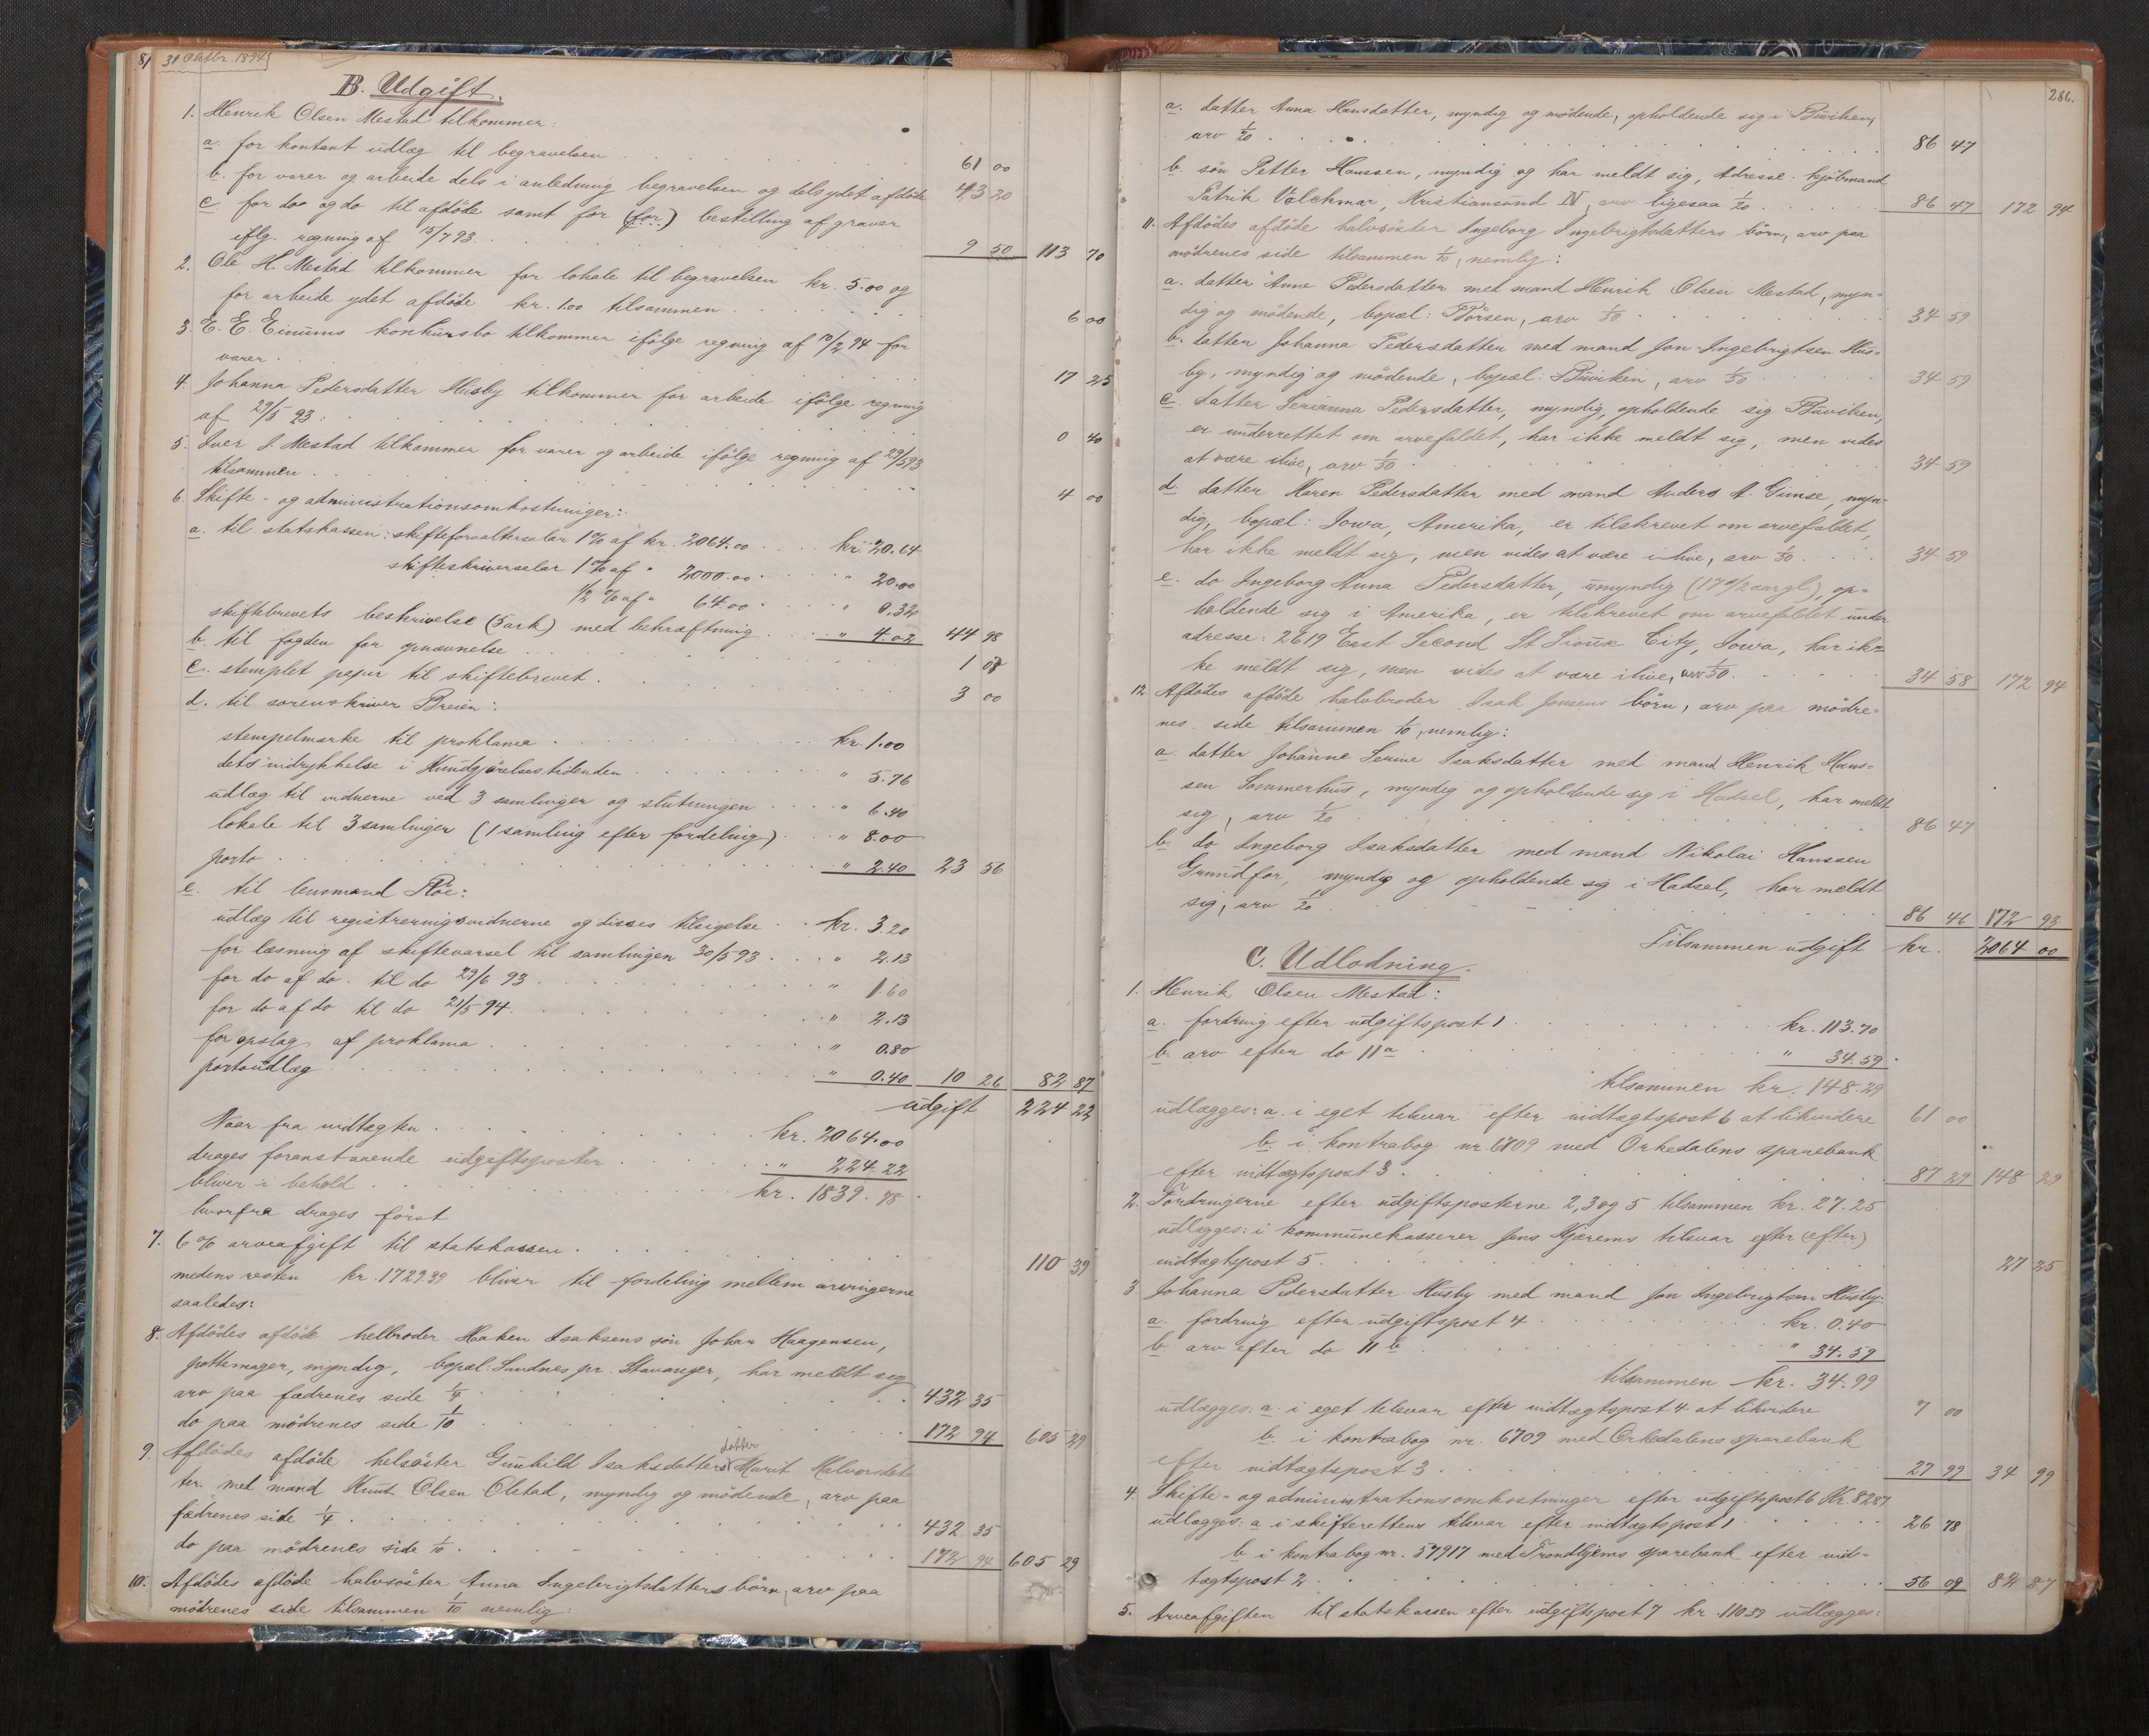 8/ 31 Oktbr. 1894
B. Udgift.
1. Henrik Olsen Mestad tilkommer:
a. for kontant udlæg til begravelsen . . . 61 00
b. for varer og arbeide dels i anledning begravelsen og dels ydet afdöde 43 20
c. for do og do til afdöde samt for (for) bestilling af graver
iflg. regning af 15/7 93. . . . 9 50 113 70
2. Ole H. Mestad tilkommer for lokale til begravelsen kr. 5.00 og
for arbeide ydet afdöde kr. 1.00 tilsammen . . . 6 00
3 E. E. Einums konkursbo tilkommer ifölge regning af 10/2 94 for
varer . . . 17 25
4. Johanna Pedersdatter Husby tilkommer for arbeide ifölge regning
af 29/5 93. . . . 0 40
5. Iver J. Mestad tilkommer for varer og arbeide ifölge regning af 29/5 93
tilsammen . . . 4 00
6. Skifte- og administrationsomkostninger:
a. til statskassen: skifteforvaltersalær 1% af kr. 2064.00 . . . kr. 20.64
skifteskriversalær 1% af " 2000.00 . . . " 20.00
1/2 % af " 64.00 . . . " 0.32
skiftebrevets beskrivelse (5 ark) med bekræftning . . . " 4.02 44 98
b. til fogden for opnævnelse . . . 1 07
c. stemplet papir til skiftebrevet . . . 3 00
d. til sorenskriver Breien:
stempelmærke til proklama . . . kr. 1.00
dets indrykkelse i Kundgjørelsestidenden . . . " 5.76
udlæg til vidnerne ved 3 samlinger og slutningen . . . " 6.40
lokale til 3 samlinger (1 samling efter fordeling) . . . " 8.00
porto . . . " 2.40 23 56
e. til lensmand Röe:
udlæg til registreringsvidnerne og disses tilsigelse . . kr. 3.20
for læsning af skiftevarsel til samlingen 30/5 93 . . . " 2.13
for do af do. til do 29/6 93 . . . " 1.60
for do af do til do 21/5 94 . . . " 2.13
for opslag af proklama . . . " 0.80
portoudlæg . . . " 0.40 10 26 82 87
udgift 224 22
Naar fra indtægten . . . kr. 2064.00
drages foranstaaende udgiftsposter . . . " 224.22
bliver i behold . . . kr. 1839.78
hvorfra drages först
7. 6% arveafgift til statskassen . . . 110 39
medens resten kr. 1729.39 bliver til fordeling mellem arvingerne
saaledes:
8. Afdödes afdöde helbroder Haken Isaksens sön Johan Haagensen,
pottemager, myndig, bopæl: Sandnes pr. Stavanger, har meldt sig
arv paa fædrenes side 1/4 . . . 432 35
do paa mödrenes side 1/10 . . . 172 94 605 29
9. Afdödes afdöde helsöster Gunhild Isaksdatters datter Marit Halvorsdat-
ter med mand Knut Olsen Olstad, myndig og mödende, arv paa
fædrenes side 1/4 . . . 432 35
do paa mödrenes side 1/10 . . . 172 94 605 29
10. Afdödes afdöde halvsöster Anna Ingebrigtsdatters börn, arv paa
mödrenes side tilsammen 1/10 nemlig:
286.
a. datter Anna Hansdatter, myndig og mödende, opholdende sig i Buviken,
arv 1/20 . . . 86 47
b. sön Petter Hanssen, myndig og har meldt sig, Adresse: kjöbmand
Patrik Volckmar, Kristiansund N, arv ligesaa 1/20 . . . 86 47 172 94
11. Afdödes afdöde halvsöster Ingeborg Ingebrigtsdatters börn, arv paa
mödrenes side tilsammen 1/10, nemlig:
a. datter Anne Pedersdatter med mand Henrik Olsen Mestad, myn-
dig og mödende, bopæl: Börsen, arv 1/50 . . . 34 59
b. datter Johanna Pedersdatter med mand Jon Ingebrigtsen Hus-
by, myndig og mödende, bopæl: Buviken, arv 1/50 . . . 34 59
c. datter Serianna Pedersdatter, myndig, opholdende sig Buviken,
er underrettet om arvefaldet, har ikke meldt sig, men vides
at være ilive, arv 1/50 . . . 34 59
d. datter Maren Pedersdatter med mand Anders A. Gimse, myn-
dig, bopæl: Iowa, Amerika, er tilskrevet om arvefaldet,
har ikke meldt sig, men vides at være ilive, arv 1/50 . . . 34 59
e. do Ingeborg Anna Pedersdatter, umyndig (17 1/2 aargl), op-
holdende sig i Amerika, er tilskrevet om arvefaldet under
adresse: 2619 East Second St Sioux City, Iowa, har ik-
ke meldt sig, men vides at være ilive, arv 1/50 . . . 34 58 172 94
12 Afdödes afdöde halvbroder Isak Jonsens börn, arv paa mödre-
nes side tilsammen 1/10, nemlig:
a datter Johanne Serine Isaksdatter med mand Henrik Hans-
sen Sommerhus, myndig og opholdende sig i Hadsel, har meldt
sig, arv 1/20 . . . 86 47
b. do Ingeborg Isaksdatter med mand Nikolai Hanssen
Grundfor, myndig og opholdende sig i Hadsel, har meldt
sig, arv 1/20 . . . 86 46 172 93
Tilsammen udgift kr. 2064 00
C. Udlodning.
1. Henrik Olsen Mestad:
a. fordring efter udgiftspost 1 . . . kr. 113.70
b. arv efter do 11 a . . . " 34.59
tilsammen kr. 148.29
udlægges: a. i eget tilsvar efter indtægtspost 6 at likvidere 61 00
b. i kontrabog nr. 6709 med Orkedalens sparebank
efter indtægtspost 3 . . . 87 29 148 29
2. Fordringerne efter udgiftsposterne 2, 3 og 5 tilsammen kr. 27.25
udlægges: i kommunekasserer Jens Kjærems tilsvar efter (efter)
indtægtspost 5 . . . 27 25
3. Johanna Pedersdatter Husby med mand Jon Ingebrigtsen Husby:
a. fordring efter udgiftspost 4 . . . kr. 0.40
b. arv efter do 11 b . . . " 34.59
tilsammen kr. 34.99
udlægges: a. i eget tilsvar efter indtægtspost 4 at likvidere 7 00
b. i kontrabog nr. 6709 med Orkedalens sparebank
efter indtægtspost 3 . . . 27 99 34 99
4. Skifte- og administrationsomkostninger efter udgiftspost 6 Kr. 82.87
udlægges: a i skifterettens tilsvar efter indtægtspost 1 . . . 26 78
b i kontrabog nr. 57917 med Trondhjems sparebank efter ind-
tægtspost 2 . . . 56 09 82 87
5. Arveafgiften til statskassen efter udgiftspost 7 kr. 110.39 udlægges: